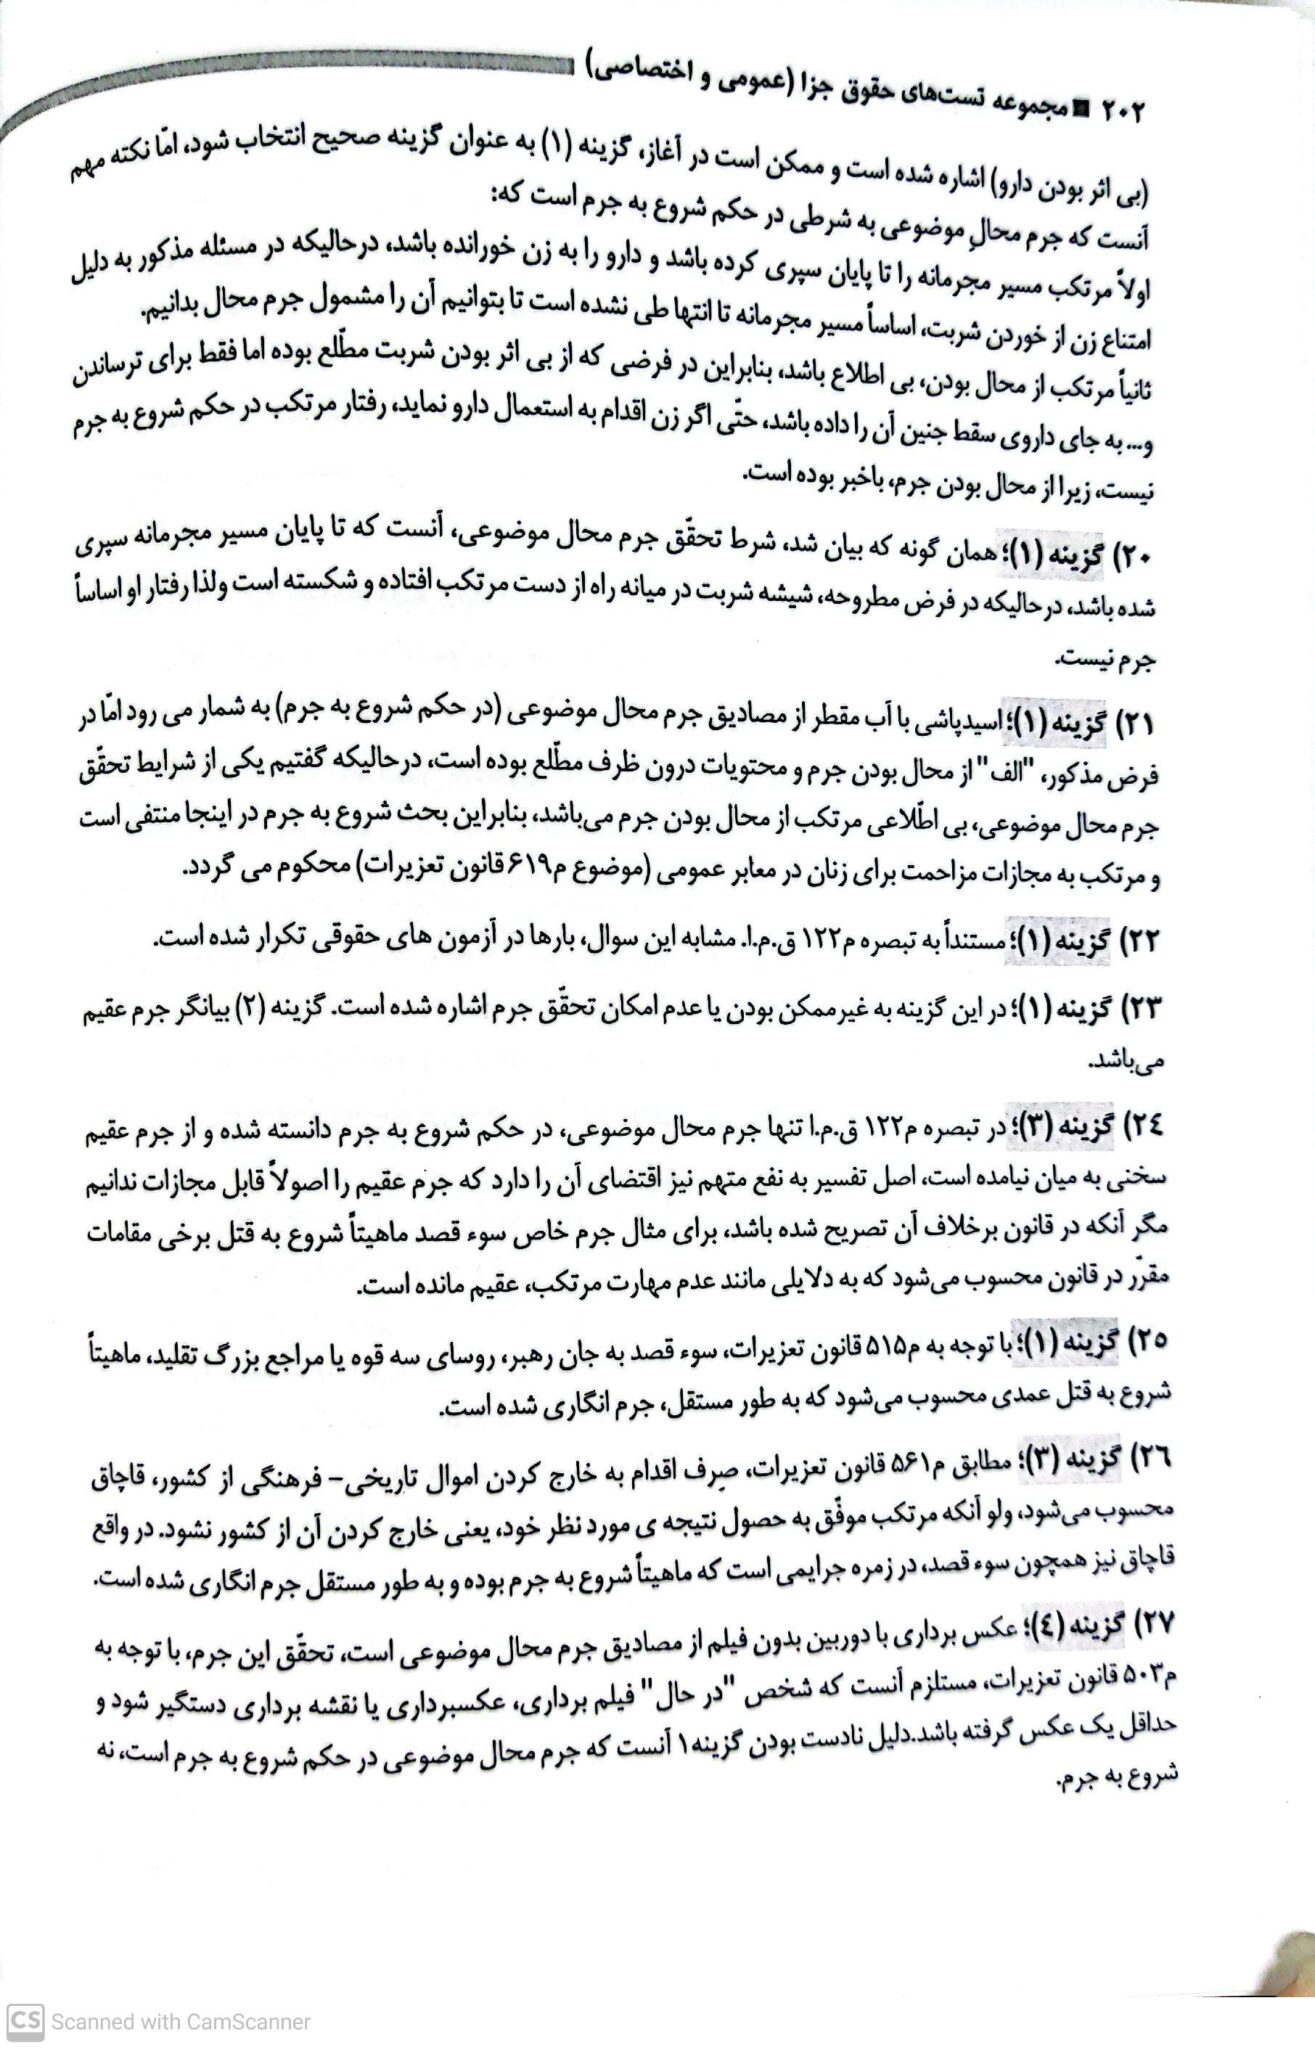 ۲۰۲ ■ مجموعه تست‌های حقوق جزا (عمومی و اختصاصی)
(بی اثر بودن دارو) اشاره شده است و ممکن است در آغاز، گزینه (۱) به عنوان گزینه صحیح انتخاب شود، امّا نکته مهم
آنست که جرم محالِ موضوعی به شرطی در حکم شروع به جرم است که:
اولاً مرتکب مسیر مجرمانه را تا پایان سپری کرده باشد و دارو را به زن خورانده باشد، درحالیکه در مسئله مذکور به دلیل
امتناع زن از خوردن شربت، اساساً مسیر مجرمانه تا انتها طی نشده است تا بتوانیم آن را مشمول جرم محال بدانیم.
ثانیاً مرتکب از محال بودن، بی اطلاع باشد، بنابراین در فرضی که از بی اثر بودن شربت مطّلع بوده اما فقط برای ترساندن
و... به جای داروی سقط جنین آن را داده باشد، حتّی اگر زن اقدام به استعمال دارو نماید، رفتار مرتکب در حکم شروع به جرم
نیست، زیرا از محال بودن جرم، باخبر بوده است.
۲۰) گزینه (۱)؛ همان گونه که بیان شد، شرط تحقّق جرم محال موضوعی، آنست که تا پایان مسیر مجرمانه سپری
شده باشد، درحالیکه در فرض مطروحه، شیشه شربت در میانه راه از دست مرتکب افتاده و شکسته است ولذا رفتار او اساساً
جرم نیست.
۲۱) گزینه (۱)؛ اسیدپاشی با آب مقطر از مصادیق جرم محال موضوعی (در حکم شروع به جرم) به شمار می رود امّا در
فرض مذکور، "الف" از محال بودن جرم و محتویات درون ظرف مطّلع بوده است، درحالیکه گفتیم یکی از شرایط تحقّق
جرم محال موضوعی، بی اطّلاعی مرتکب از محال بودن جرم می‌باشد، بنابراین بحث شروع به جرم در اینجا منتفی است
و مرتکب به مجازات مزاحمت برای زنان در معابر عمومی (موضوع م۶۱۹ قانون تعزیرات) محکوم می گردد.
۲۲) گزینه (۱)؛ مستنداً به تبصره م۱۲۲ ق.م.ا. مشابه این سوال، بارها در آزمون های حقوقی تکرار شده است.
۲۳) گزینه (۱)؛ در این گزینه به غیرممکن بودن یا عدم امکان تحقّق جرم اشاره شده است. گزینه (۲) بیانگر جرم عقیم
می‌باشد.
۲٤) گزینه (۳)؛ در تبصره م۱۲۲ ق.م.ا تنها جرم محال موضوعی، در حکم شروع به جرم دانسته شده و از جرم عقیم
سخنی به میان نیامده است، اصل تفسیر به نفع متهم نیز اقتضای آن را دارد که جرم عقیم را اصولاً قابل مجازات ندانیم
مگر آنکه در قانون برخلاف آن تصریح شده باشد، برای مثال جرم خاص سوء قصد ماهیتاً شروع به قتل برخی مقامات
مقرّر در قانون محسوب می‌شود که به دلایلی مانند عدم مهارت مرتکب، عقیم مانده است.
۲٥) گزینه (۱)؛ با توجه به م۵۱۵ قانون تعزیرات، سوء قصد به جان رهبر، روسای سه قوه یا مراجع بزرگ تقلید، ماهیتاً
شروع به قتل عمدی محسوب می‌شود که به طور مستقل، جرم انگاری شده است.
۲٦) گزینه (۳)؛ مطابق م۵۶۱ قانون تعزیرات، صِرف اقدام به خارج کردن اموال تاریخی- فرهنگی از کشور، قاچاق
محسوب می‌شود، ولو آنکه مرتکب موفّق به حصول نتیجه ی مورد نظر خود، یعنی خارج کردن آن از کشور نشود. در واقع
قاچاق نیز همچون سوء قصد، در زمره جرایمی است که ماهیتاً شروع به جرم بوده و به طور مستقل جرم انگاری شده است.
۲۷) گزینه (٤)؛ عکس برداری با دوربین بدون فیلم از مصادیق جرم محال موضوعی است، تحقّق این جرم، با توجه به
م۵۰۳ قانون تعزیرات، مستلزم آنست که شخص "در حال" فیلم برداری، عکسبرداری یا نقشه برداری دستگیر شود و
حداقل یک عکس گرفته باشد.دلیل نادست بودن گزینه۱ آنست که جرم محال موضوعی در حکم شروع به جرم است، نه
شروع به جرم.
CS Scanned with CamScanner